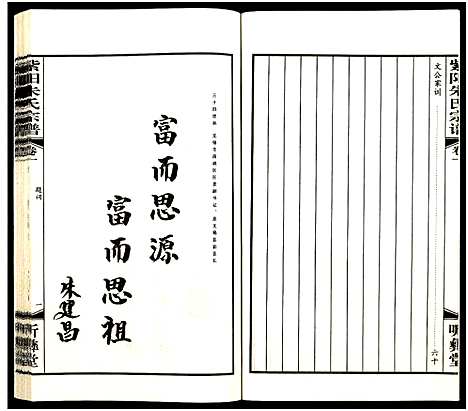 紫阳朱氏宗谱
卷一
文公家训
六十
听彝堂
富而思源
富而思祖
朱建昌
紫阳朱氏宗谱
卷一
题词
一
听彝堂